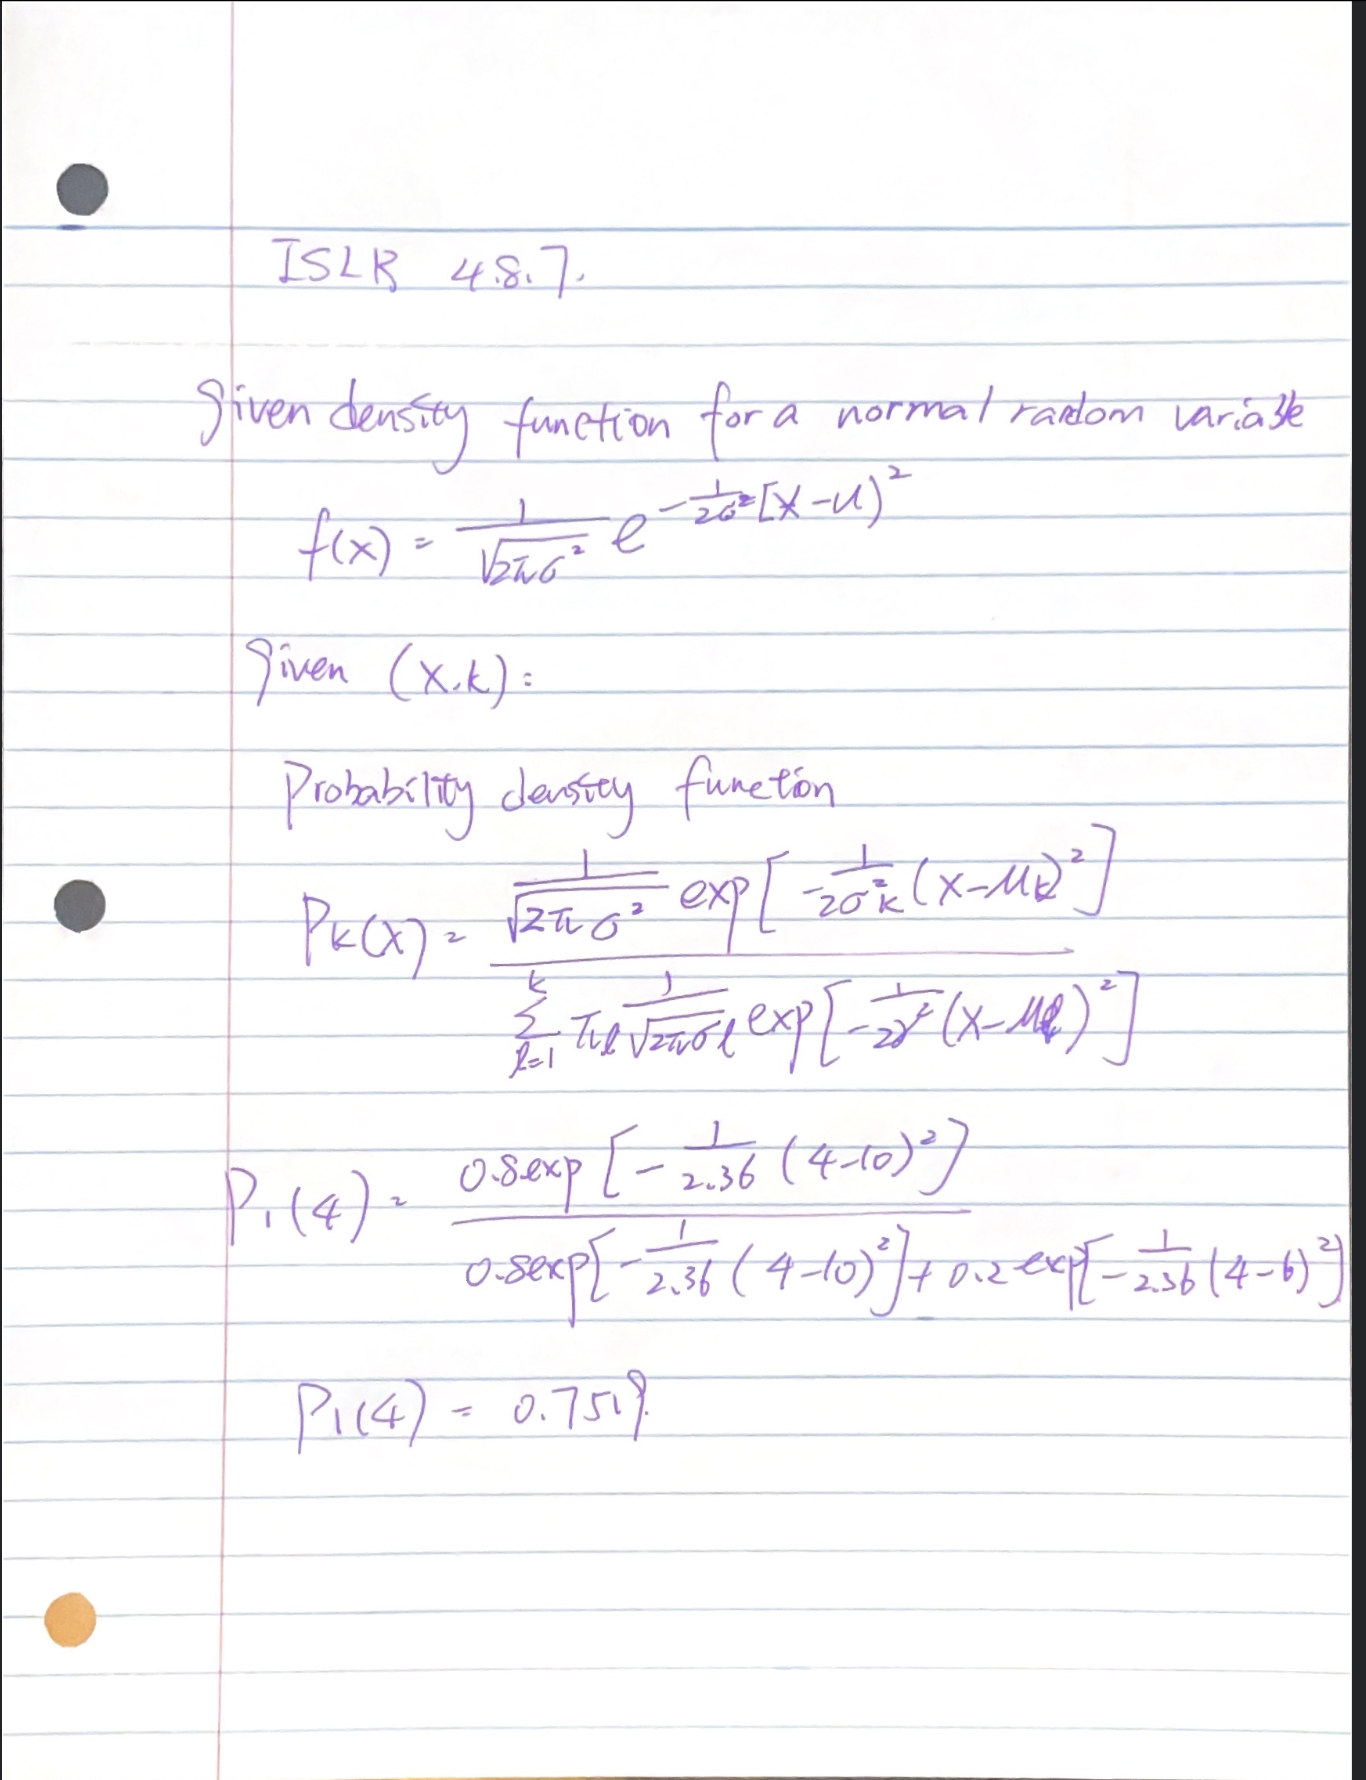 ISLR 4.8.7.
given density function for a normal random variable
f(x) = 1/√2πσ² e^-1/2σ² [x-u)²
given (x.k):
Probability density function
Pk(x) = 1/√2πσ² exp[-1/2σ²k (x-μk)²]
Σ k l=1 πl 1/√2πσl exp[-1/2σ² (x-μl)²]
P1(4) = 0.8exp[-1/2.36 (4-10)²]
0.8exp[-1/2.36 (4-10)²]+0.2exp[-1/2.36 (4-6)²]
P1(4) = 0.7519